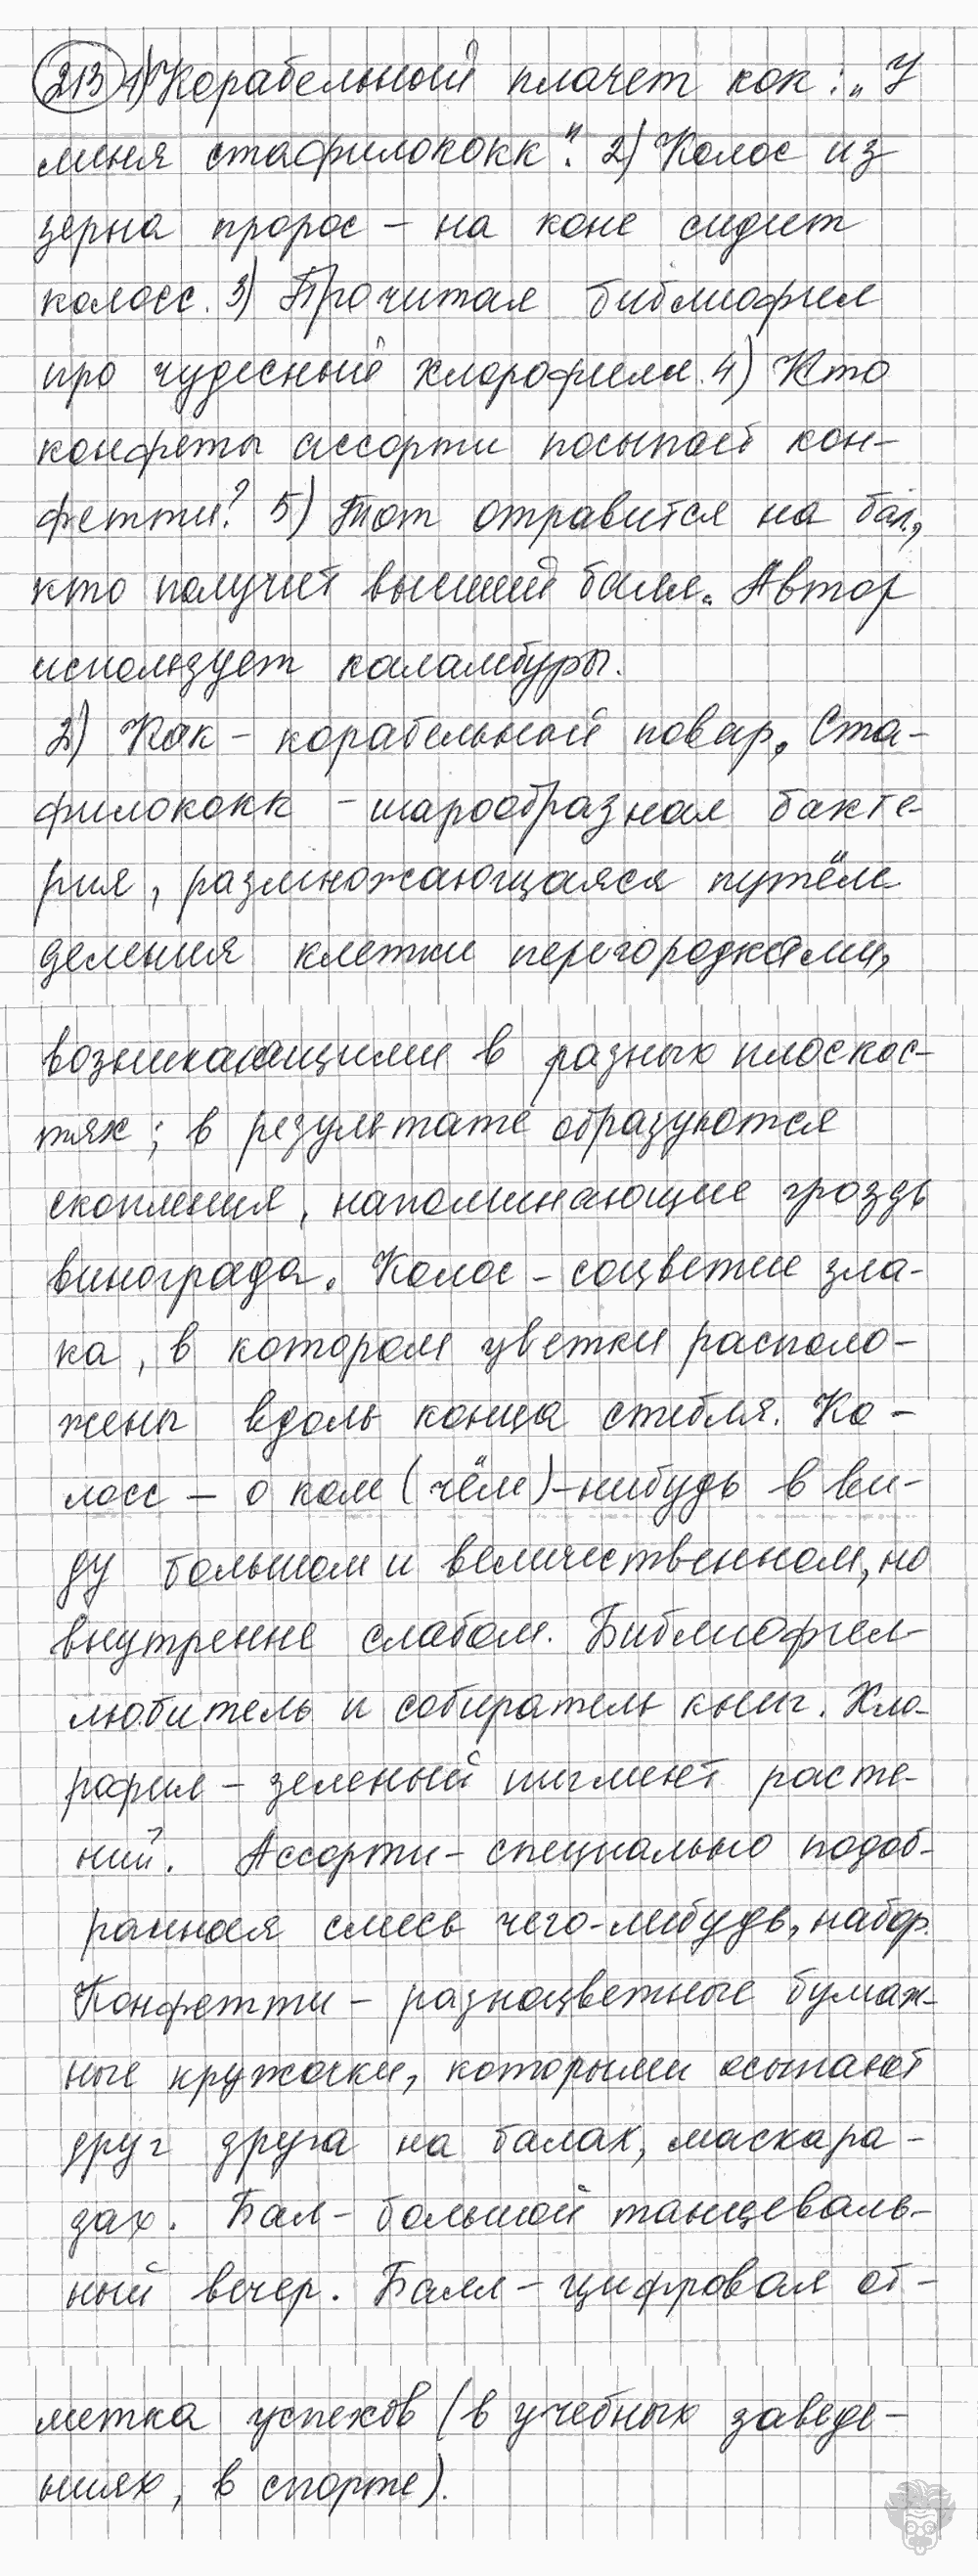 213 1) Корабельный плачет кок: „У
меня стафилококк". 2) Колос из
зерна пророс – на коне сидит
колосс. 3) Прочитал библиофил
про чудесный хлорофилл. 4) Кто
конфеты ассорти посыпает кон-
фетти? 5) Тот отравится на бал,
кто получит высший балл. Автор
использует каламбуры.
2) Кок – корабельный повар, Ста-
филококк – шарообразная бакте-
рия, размножающаяся путём
деления клетки перегородками,
возникающими в разных плоскос-
тях; в результате образуются
скопления, напоминающие гроздь
винограда. Колос – соцветие зла-
ка, в котором цветки располо-
жены вдоль конца стебля. Ко-
лосс – о ком (чём)-нибудь в ви-
ду большом и величественном, но
внутренне слабом. Библиофил –
любитель и собиратель книг. Хло-
рофил – зеленый пигмент расте-
ний. Ассорти – специально подоб-
ранная смесь чего-либудь, набор.
Конфетти – разноцветные бумаж-
ные кружочки, которыми осыпают
друг друга на балах, маскара-
дах. Бал – большой танцеваль-
ный вечер. Балл – цифровая от-
метка успехов (в учебных заведе-
ниях, в спорте).